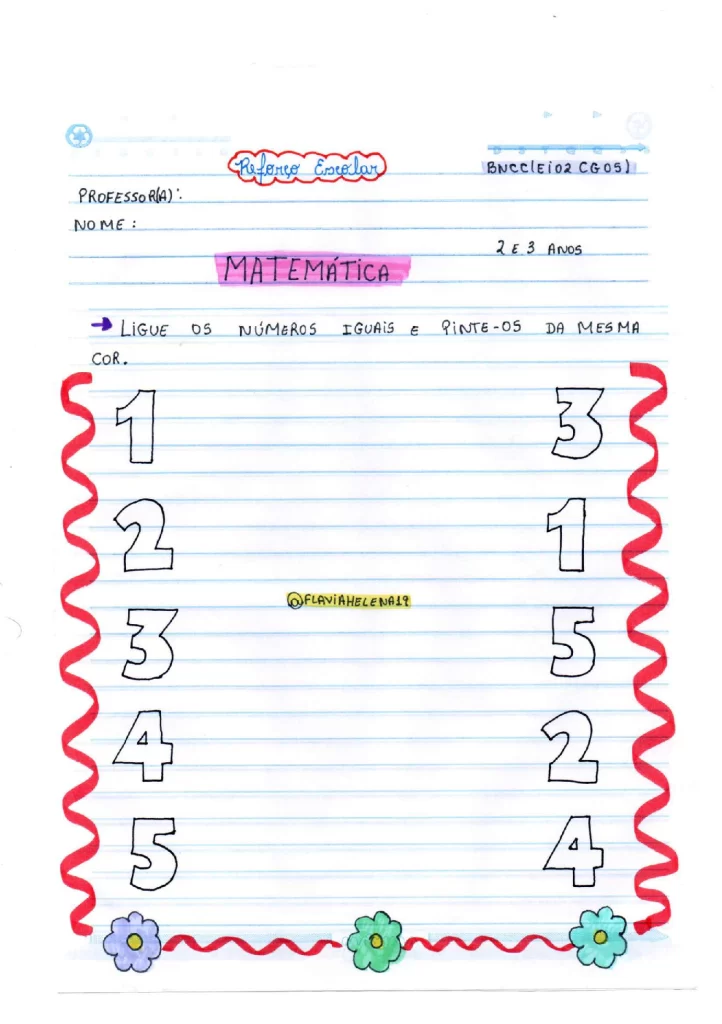 Reforço Escolar
BNCC(Ei02 CG05)
PROFESSOR(A):
NOME:
2 E 3 ANOS
MATEMÁTICA
→ LIGUE OS NÚMEROS IGUAIS E PINTE-OS DA MESMA
COR.
1 3
2 1
3 5
4 2
5 4
@FLAVIAHELENA19